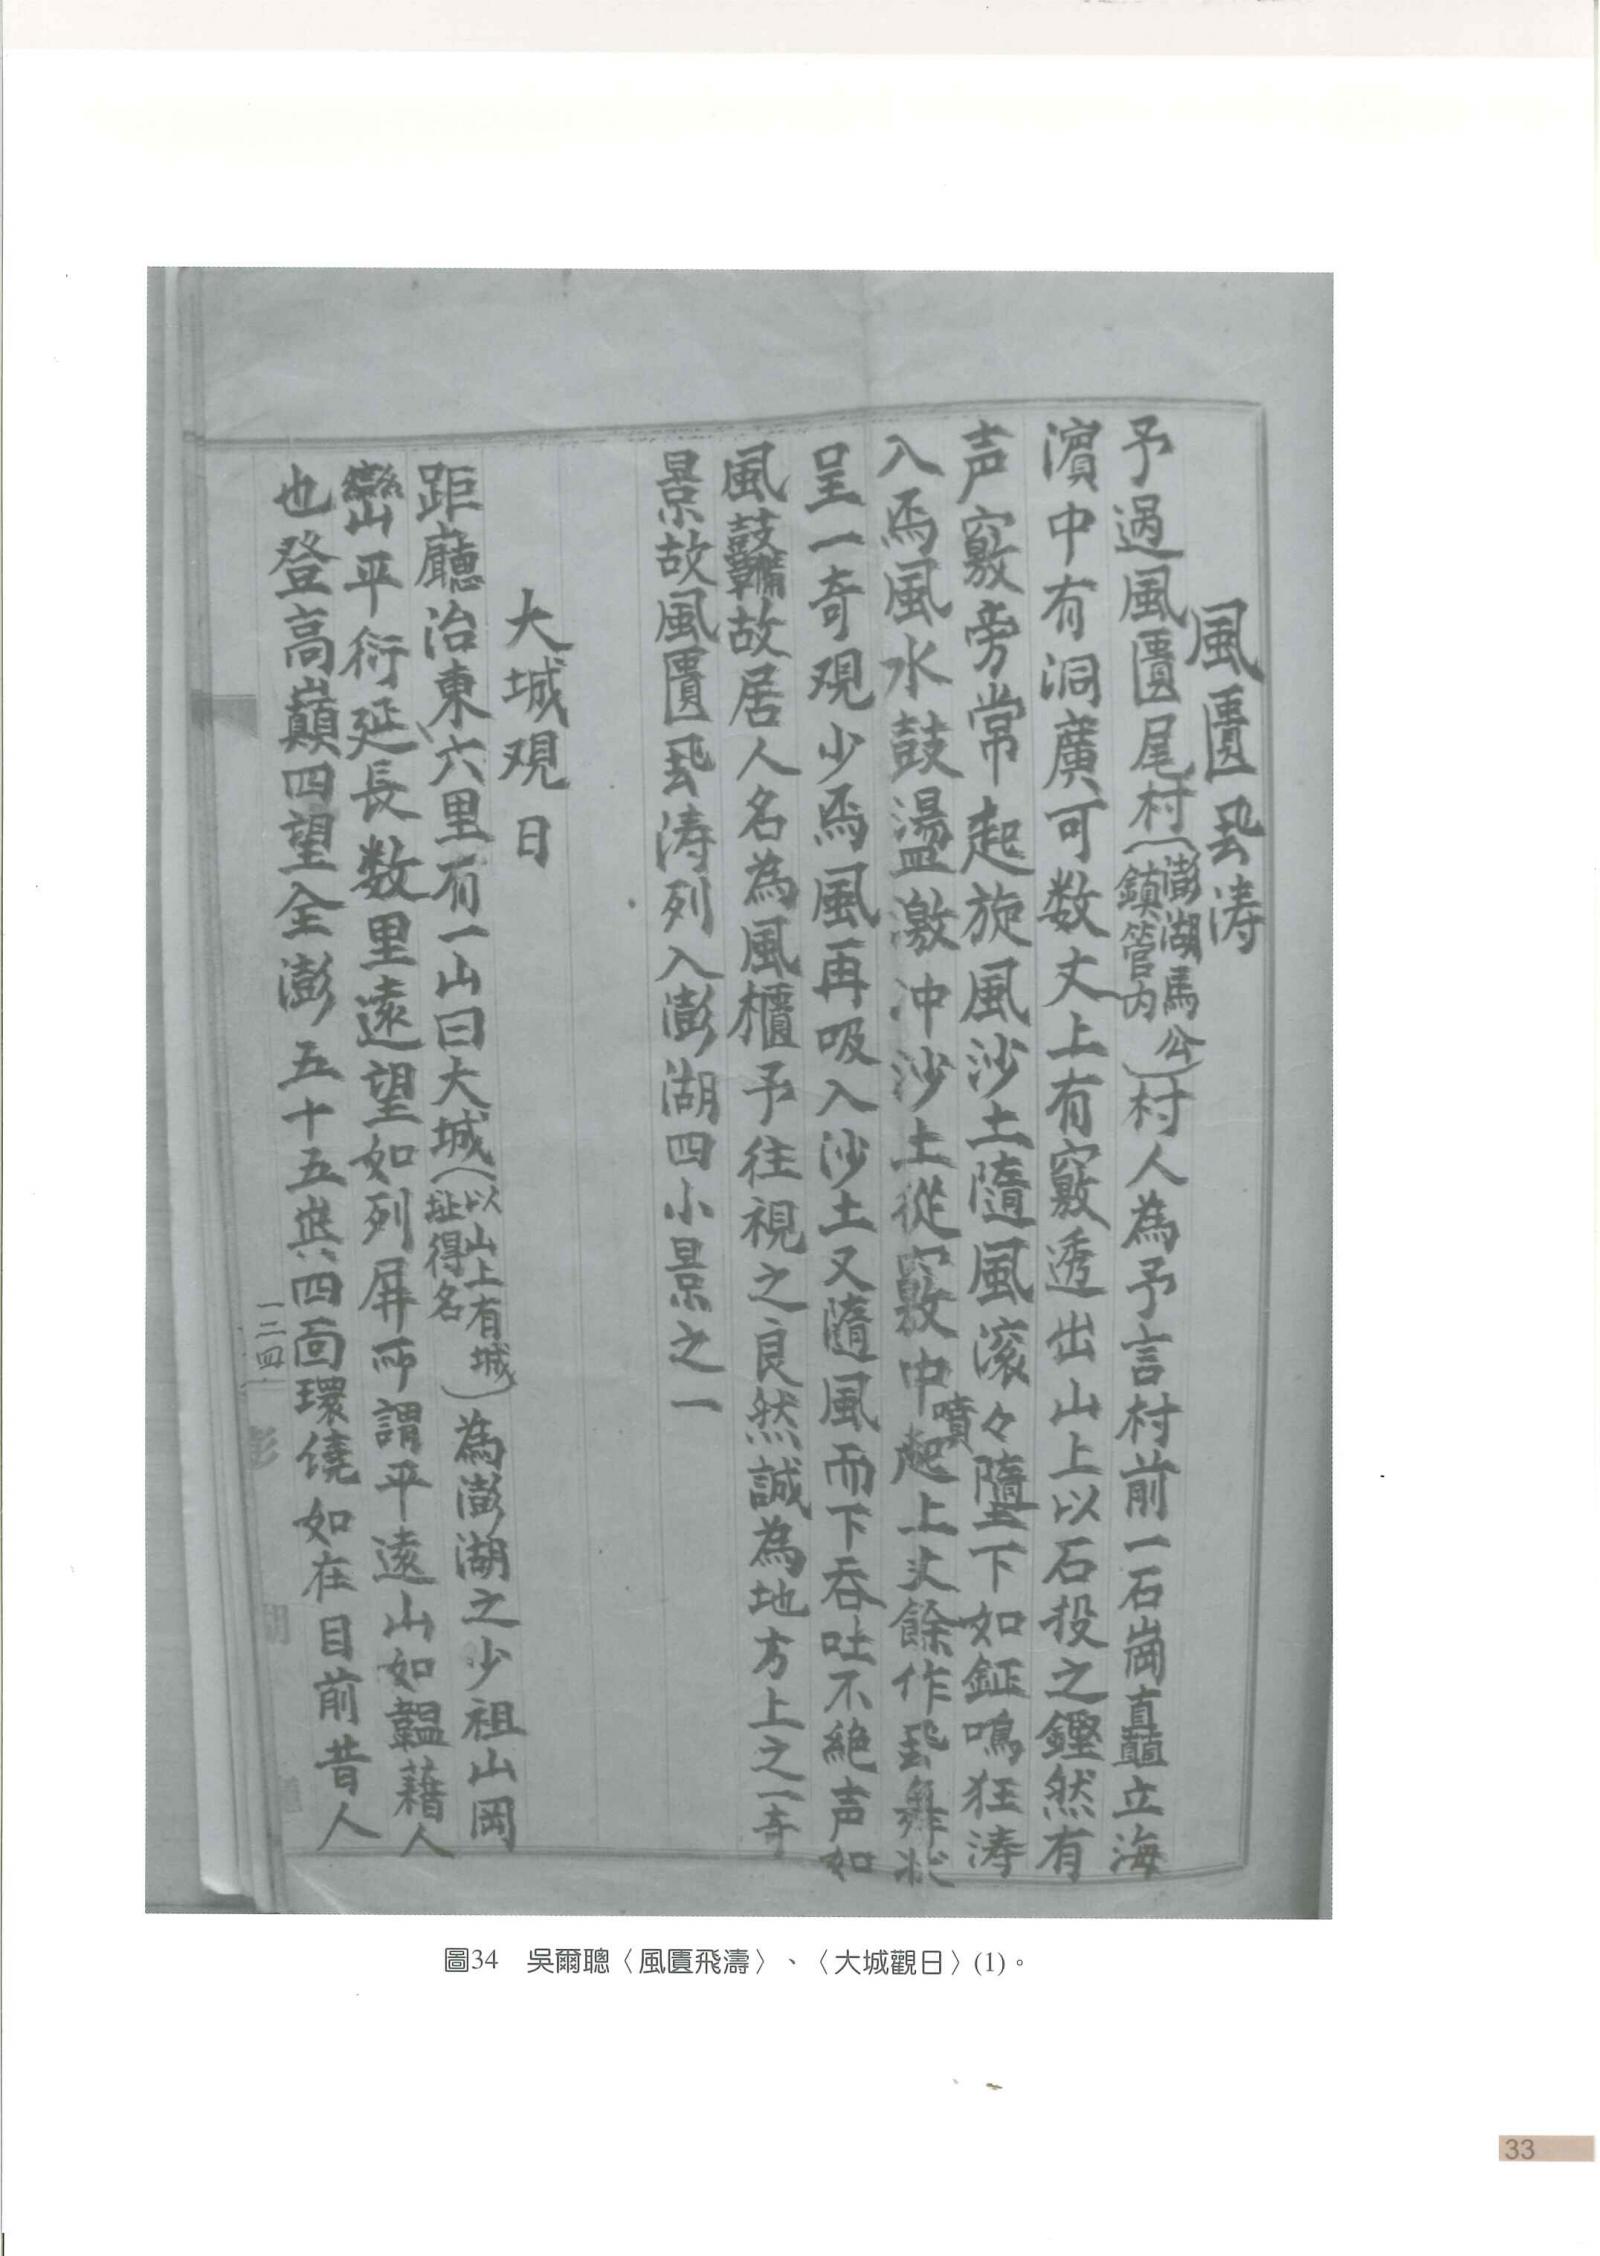 風匱飛涛
予過風匱尾村(澎湖馬公鎮管内)村人為予言村前一石崗直矗立海
濱中有洞廣可数丈上有竅透出山上以石投之鏗然有
声竅旁常起旋風沙土隨風滚々墮下如鉦鳴狂涛
入焉風水鼓盪激冲沙土從竅中噴起上丈餘作飛舞狀
呈一奇观少焉風再吸入沙土又隨風而下吞吐不絶声如
風鼓鞴故居人名為風櫃予往視之良然誠為地方上之一奇
景故風匱飛涛列入澎湖四小景之一
大城观日
距廳治東六里有一山曰大城(以山上有城址得名)為澎湖之少祖山岡
巒平衍延長数里遠望如列屏所謂平遠山如韞藉人
也登高巔四望全澎五十五嶼四面環繞如在目前昔人
一三四
澎
湖
圖34　吳爾聰〈風匱飛濤〉、〈大城觀日〉(1)。
33